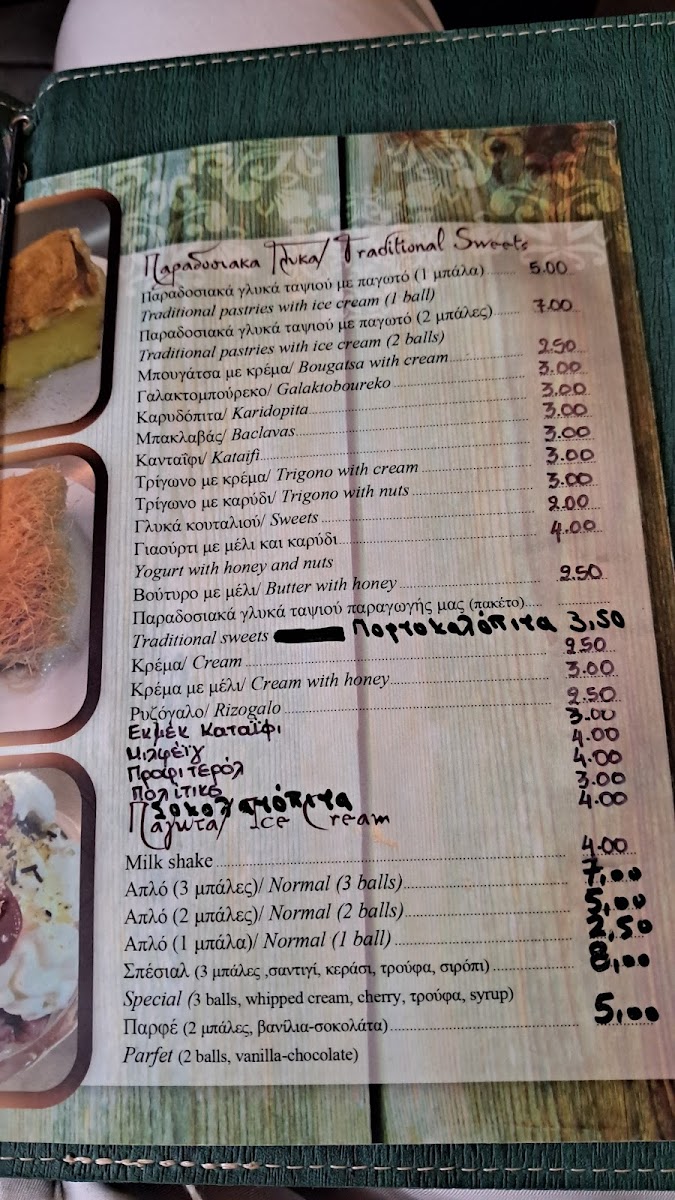 Παραδοσιακα Γλυκα/ Traditional Sweets
Παραδοσιακά γλυκά ταψιού με παγωτό (1 μπάλα) 5.00
Traditional pastries with ice cream (1 ball)
Παραδοσιακά γλυκά ταψιού με παγωτό (2 μπάλες) 7.00
Traditional pastries with ice cream (2 balls)
Μπουγάτσα με κρέμα/ Bougatsa with cream 2.50
Γαλακτομπούρεκο/ Galaktoboureko 3.00
Καρυδόπιτα/ Karidopita 3.00
Μπακλαβάς/ Baclavas 3.00
Κανταΐφι/ Kataifi 3.00
Τρίγωνο με κρέμα/ Trigono with cream 3.00
Τρίγωνο με καρύδι/ Trigono with nuts 3.00
Γλυκά κουταλιού/ Sweets 2.00
Γιαούρτι με μέλι και καρύδι 4.00
Yogurt with honey and nuts
Βούτυρο με μέλι/ Butter with honey 2.50
Παραδοσιακά γλυκά ταψιού παραγωγής μας (πακέτο)
Traditional sweets Πορτοκαλόπιτα 3,50
Κρέμα/ Cream 2.50
Κρέμα με μέλι/ Cream with honey 3.00
Ρυζόγαλο/ Rizogalo 2.50
Εκμέκ Καταΐφι 3.00
Μιλφέϊγ 4.00
Προφιτερόλ 4.00
Πολίτικο 3.00
Σοκολατόπιτα 4.00
Παγωτα/ Ice Cream
Milk shake 4.00
Απλό (3 μπάλες)/ Normal (3 balls) 7,00
Απλό (2 μπάλες)/ Normal (2 balls) 5,00
Απλό (1 μπάλα)/ Normal (1 ball) 2,50
Σπέσιαλ (3 μπάλες ,σαντιγί, κεράσι, τρούφα, σιρόπι) 8,00
Special (3 balls, whipped cream, cherry, τρούφα, syrup)
Παρφέ (2 μπάλες, βανίλια-σοκολάτα) 5,00
Parfet (2 balls, vanilla-chocolate)